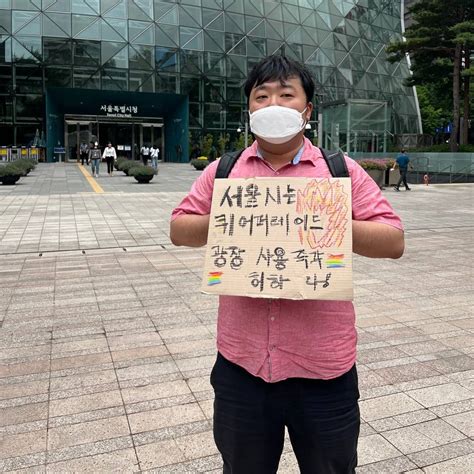 서울특별시청
Seoul City Hall
서울시는
퀴어퍼레이드
광장 사용 즉각
허하라!